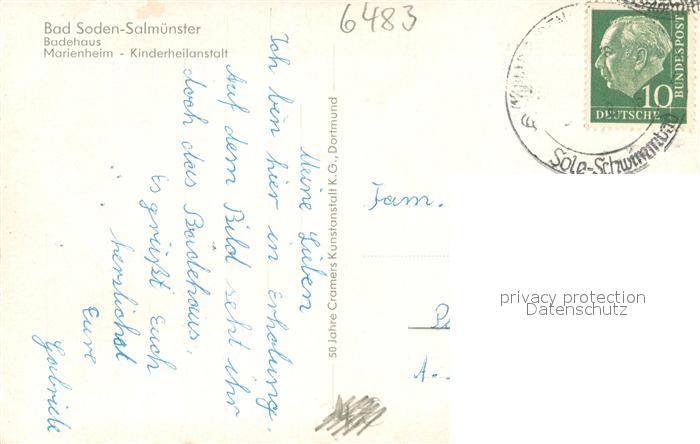 Bad Soden-Salmünster
Badehaus
Marienheim - Kinderheilanstalt
6483
Meine Lieben
Ich bin hier in Erholung.
Auf dem Bild seht ihr
doch das Badehaus.
Es grüßt Euch
herzlichst
Eure
Gabriele
50 Jahre Cramers Kunstanstalt K.G., Dortmund
10
DEUTSCHE
BUNDESPOST
Sole-Schwimmbad
Fam.
privacy protection
Datenschutz